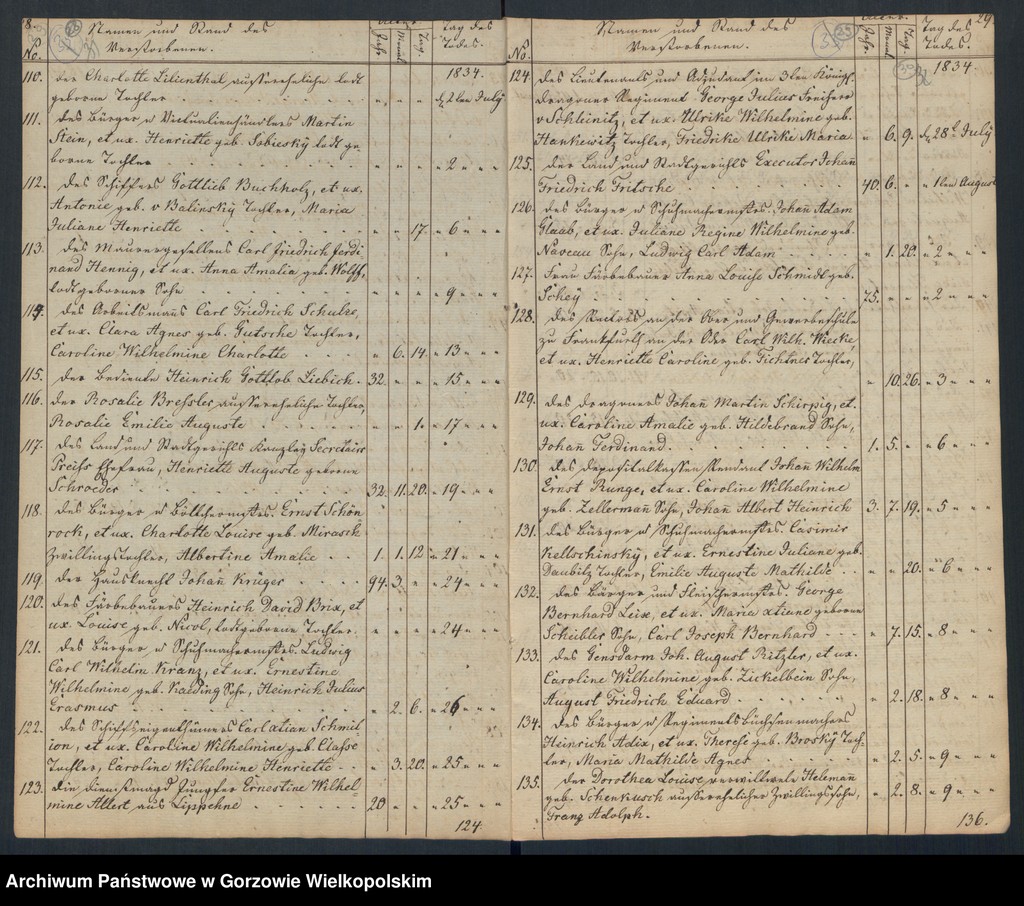 8.
Namen und Stand des
Verstorbenen.
No.
Alter.
Jahr.
Monat
Tag.
Tag des
Todes.
1834.
110. der Charlotte Lilienthal außereheliche todt
geborne Tochter " " " d 2ten July
111. des Bürger u Victualienhändlers Martin
Stein, et ux. Henriette geb. Sobiesky todt ge
borne Tochter " " " " 2 " "
112. des Schiffers Gottlieb Buchholz, et ux.
Antonie geb. v Balinsky Tochter, Maria
Juliane Henriette " " 17. " 6 " "
113. des Maurergesellens Carl Friedrich Ferdi
nand Hennig, et ux. Anna Amalia geb. Wolff,
todtgeborner Sohn " " " " 9 " "
114. des Arbeitsmans Carl Friedrich Schulze,
et ux. Clara Agnes geb. Gutsche Tochter,
Caroline Wilhelmine Charlotte " 6. 14. " 13 " "
115. der Bediente Heinrich Gottlob Liebich. 32. " " " 15 " "
116. der Rosalie Bressler außereheliche Tochter,
Rosalie Emilie Auguste " " 1. " 17 " "
117. des Land und Stadtgerichts Kanzley Secretairs
Preiss Ehefrau, Henriette Auguste geborne
Schroeder 32. 11. 20. " 19 " "
118. des Bürger u Böttchermstrs. Ernst Schön
rock, et ux. Charlotte Louise geb. Mirasch
Zwillingstochter, Albertine Amalie 1. 1. 12 " 21 " "
119. der Hausknecht Johan Krüger 94. 3. " " 24 " "
120. des Färbebauers Heinrich David Brix, et
ux. Louise geb. Nicol, todtgeborne Tochter. " " " " 24 " "
121. des Bürger u Schuhmachermstrs. Ludwig
Carl Wilhelm Kranz, et ux. Ernestine
Wilhelmine geb. Kaiding Sohn, Heinrich Julius
Erasmus " 2. 6. " 26 " "
122. des Schiffseigenthümers Carl xtian Schmil
ion, et ux. Caroline Wilhelmine geb Classe
Tochter, Caroline Wilhelmine Henriette " 3. 20. " 25 " "
123. die Dienstmagd Jungfer Ernestine Wilhel
mine Allert aus Lippehne 20 " " " 25 " "
124.
29.
Namen und Stand des
Verstorbenen.
No.
Alter.
Jahr.
Monat
Tag.
Tag des
Todes.
1834.
124. des Lieutenants und Adjudant im 3ten Königl.
Dragoner Regiment George Julius Freiherr
v Schleinitz, et ux. Ulrike Wilhelmine geb.
Hankewitz Tochter, Friedrike Ulrike Maria " 6. 9. d 28t July
125. der Land und Stadtgerichts Executor Johan
Friedrich Fritsche 40. 6. " " 1ten August
126. des Bürger u Schuhmachermstrs. Johan Adam
Glaab, et ux. Juliane Regine Wilhelmine geb.
Naveau Sohn, Ludwig Carl Adam " 1. 20. " 2 " "
127. Frau Färbebauer Anna Louise Schmidt geb.
Schey 75. " " " 2 " "
128. des Rectors an der Ober und Gewerbeschule
zu Frankfurth an der Oder Carl Wilh. Wiecke,
et ux. Henriette Caroline geb. Fichtner Tochter,
" 10. 26. " 3 " "
129. des Dragoners Johan Martin Schirpig, et.
ux. Caroline Amalie geb. Hildebrand Sohn,
Johan Ferdinand. 1. 5. " " 6 " "
130. des Depositalkassen Rendant Johan Wilhelm
Ernst Runge, et ux. Caroline Wilhelmine
geb. Zellerman Sohn, Johan Albert Heinrich 3. 7. 19. " 5 " "
131. des Bürger u Schuhmachermstrs. Casimir
Keltschinsky, et ux. Ernestine Juliane geb.
Daubitz Tochter, Emilie Auguste Mathilde " " 20. " 6 " "
132. des Bürger und Fleischermstrs. George
Bernhard Leix, et ux. Maria xtiane geborne
Scheibler Sohn, Carl Joseph Bernhard " 7. 15. " 8 " "
133. des Gensdarm Joh. August Ritzler, et ux.
Caroline Wilhelmine geb. Zickelbein Sohn,
August Friedrich Eduard " 2. 18. " 8 " "
134. des Bürger u Regimentsbüchsenmachers
Heinrich Adix, et ux. Therese geb. Brosky Toch-
ter, Maria Mathilde Agnes " 2. 5. " 9 " "
135. der Dorothea Louise verwittwete Heleman
geb. Schenkusch außerehelicher Zwillingssohn, " 2. 8. " 9 " "
Franz Adolph.
136.
Archiwum Państwowe w Gorzowie Wielkopolskim